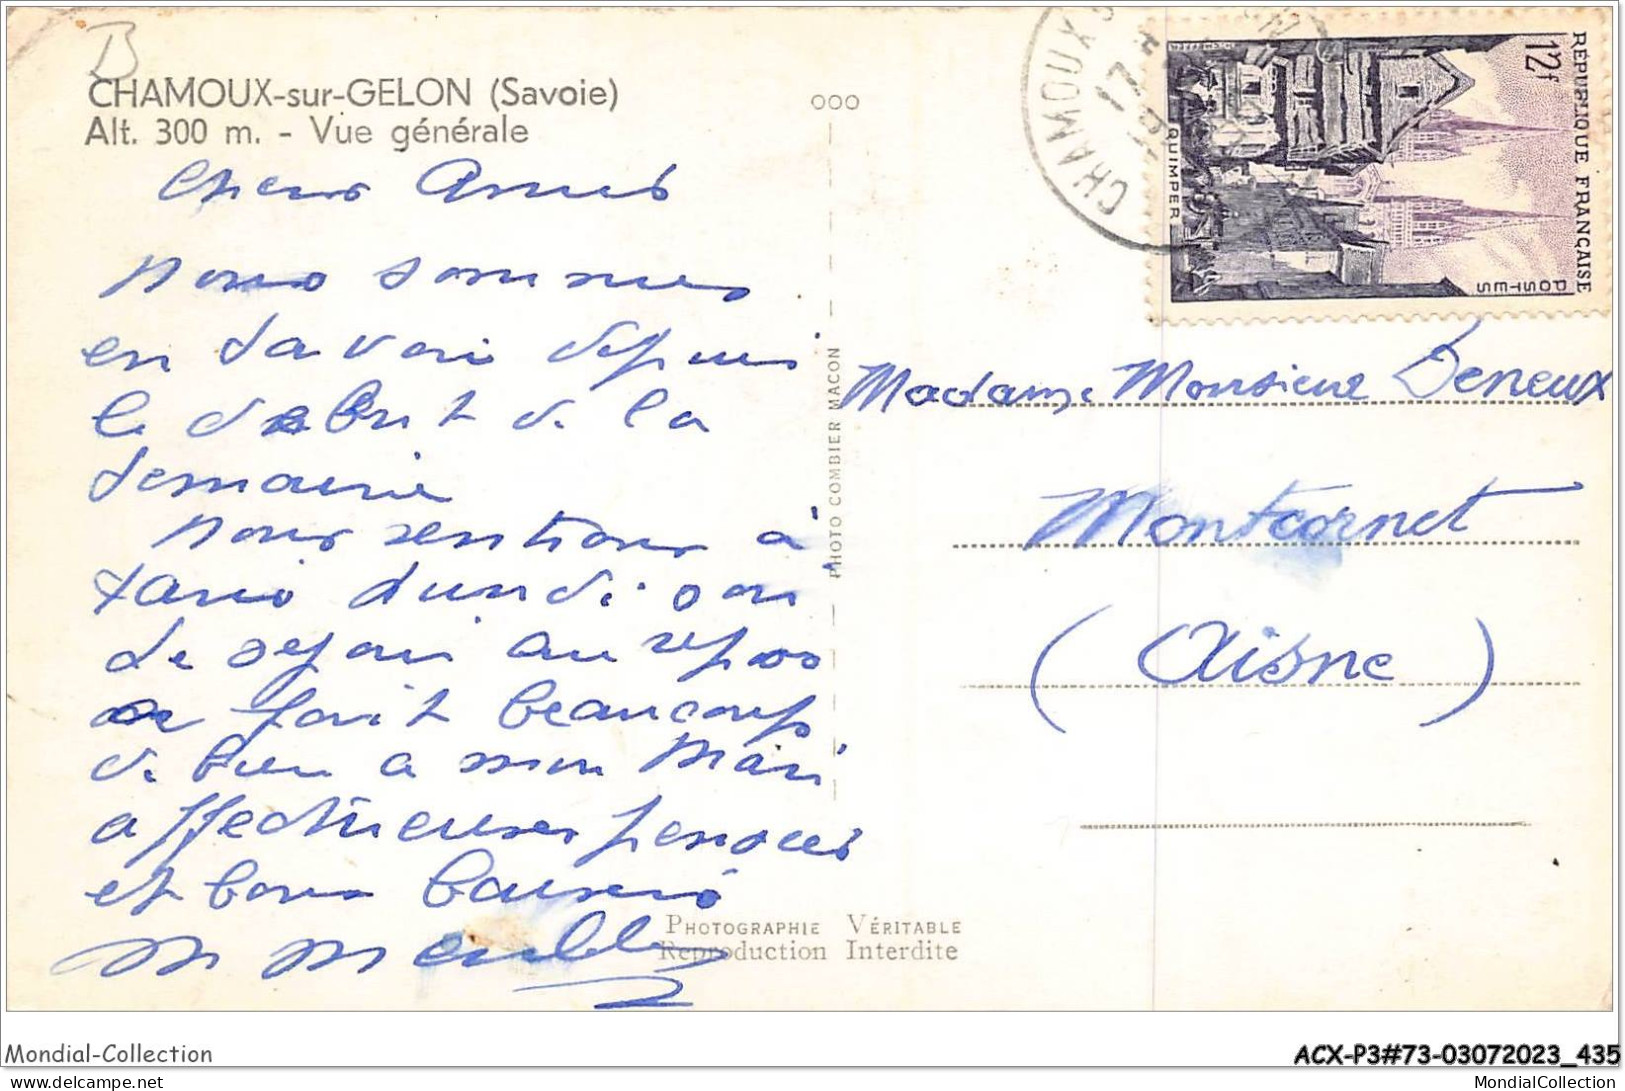 B
CHAMOUX-sur-GELON (Savoie)
Alt. 300 m. - Vue générale
Chers Amis
nous sommes
en Savoie depuis
le début de la
semaine
nous rentrons à
Paris lundi son
de sejour au repos
fait beaucoup
de bien a mon Mari
affectueuses pensées
et bons baisers
PHOTOGRAPHIE VÉRITABLE
Reproduction Interdite
OOO
PHOTO COMBIER MACON
CHAMOUX S
17
RÉPUBLIQUE FRANÇAISE
12f
POSTES
QUIMPER
Madame Monsieur Deneux
Montcornet
(Aisne)
Mondial-Collection
ACX-P3#73-03072023_435
mondial-collection.delcampe.net
MondialCollection